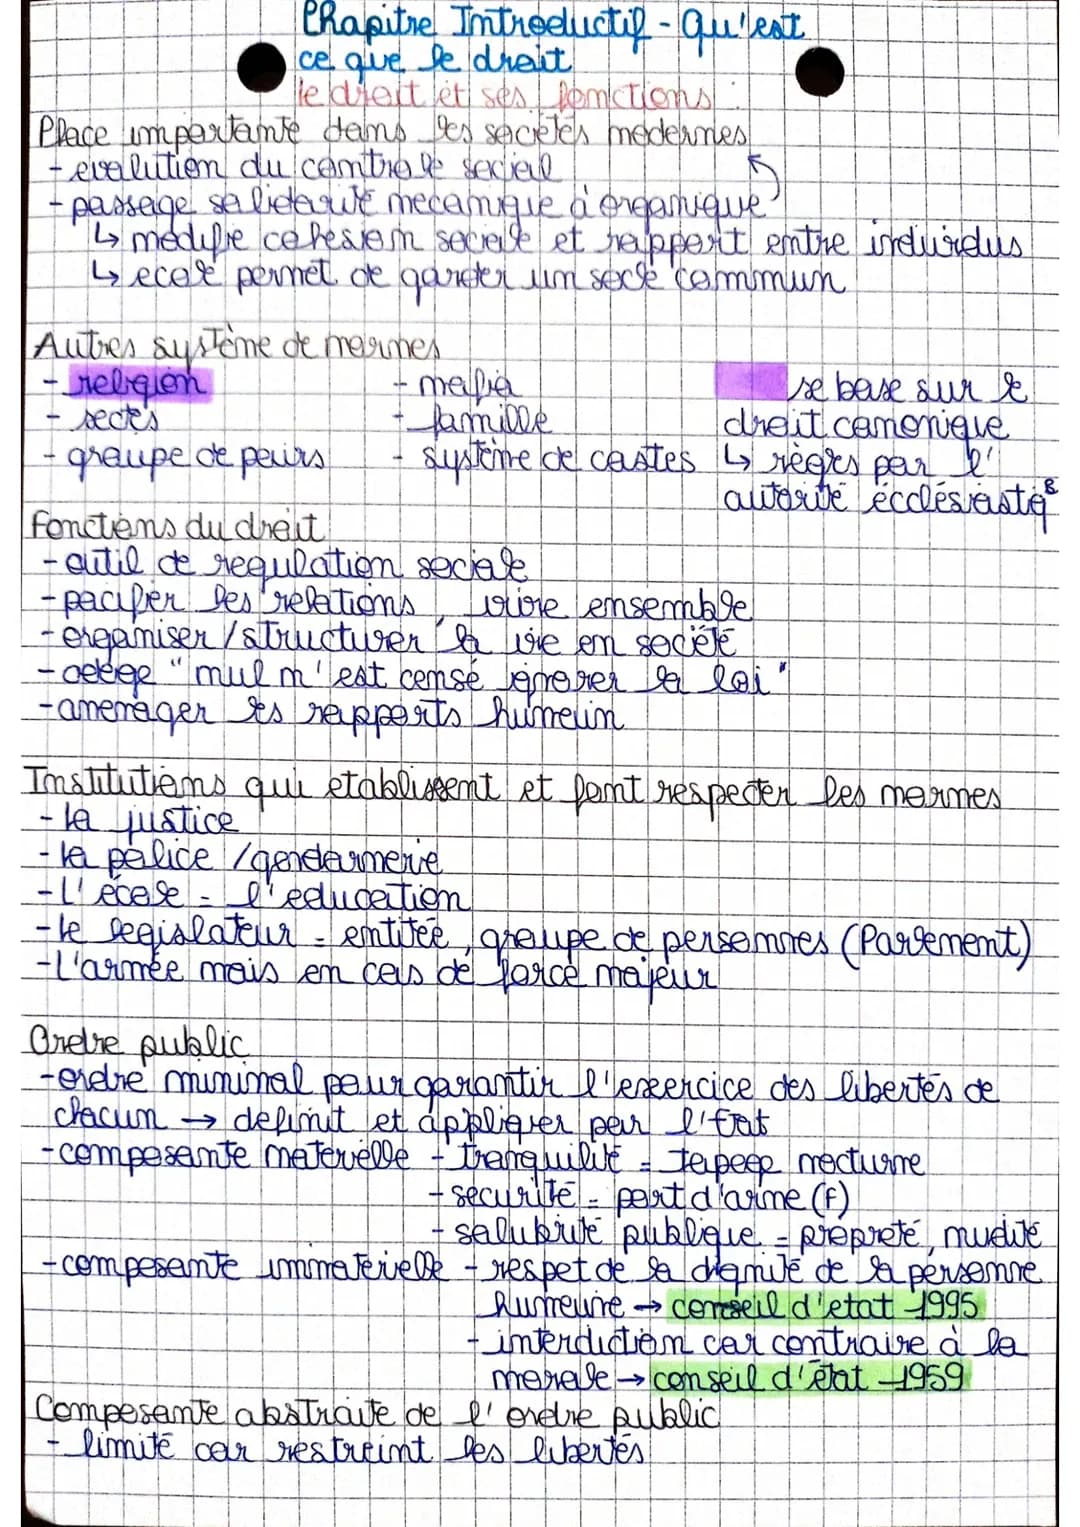 Chapitre Introductif - Qu'est
ce que le droit
le droit et ses fonctions :
Place importante dans les sociétés modernes
- evolution du controle social
- passage solidarité mecanique à organique
↳ modifie cohesion sociale et rapport entre individus
↳ ecole permet de garder un socle commun
Autres système de normes
- religion
- sectes
- groupe de pairs
- mafia
- famille
- système de castes
se base sur le
droit canonique
↳ règles par l'
autorité écclésiastiqᵉ
Fonctions du droit
- outil de regulation sociale
- pacifier les relations, vivre ensemble
- organiser / structurer la vie en société
- adage "nul n'est censé ignorer la loi"
- amenager les rapports humain
Institutions qui etablissent et font respecter les normes
- la justice
- la police / gendarmerie
- L'école = l'education
- le legislateur = entitée, groupe de personnes (Parlement)
- L'armée mais en cas de force majeur
Ordre public
- ordre minimal pour garantir l'exercice des libertés de
chacun → definit et appliquer par l'Etat
- composante materielle - tranquilité = tapage nocturne
- securité = port d'arme (f)
- salubrité publique = propreté, nudité
- composante immaterielle - respet de la dignité de la personne
humaine → conseil d'etat 1995
- interdiction car contraire à la
morale → conseil d'État 1959
Composante abstraite de l'ordre public
- limité car restreint les libertés